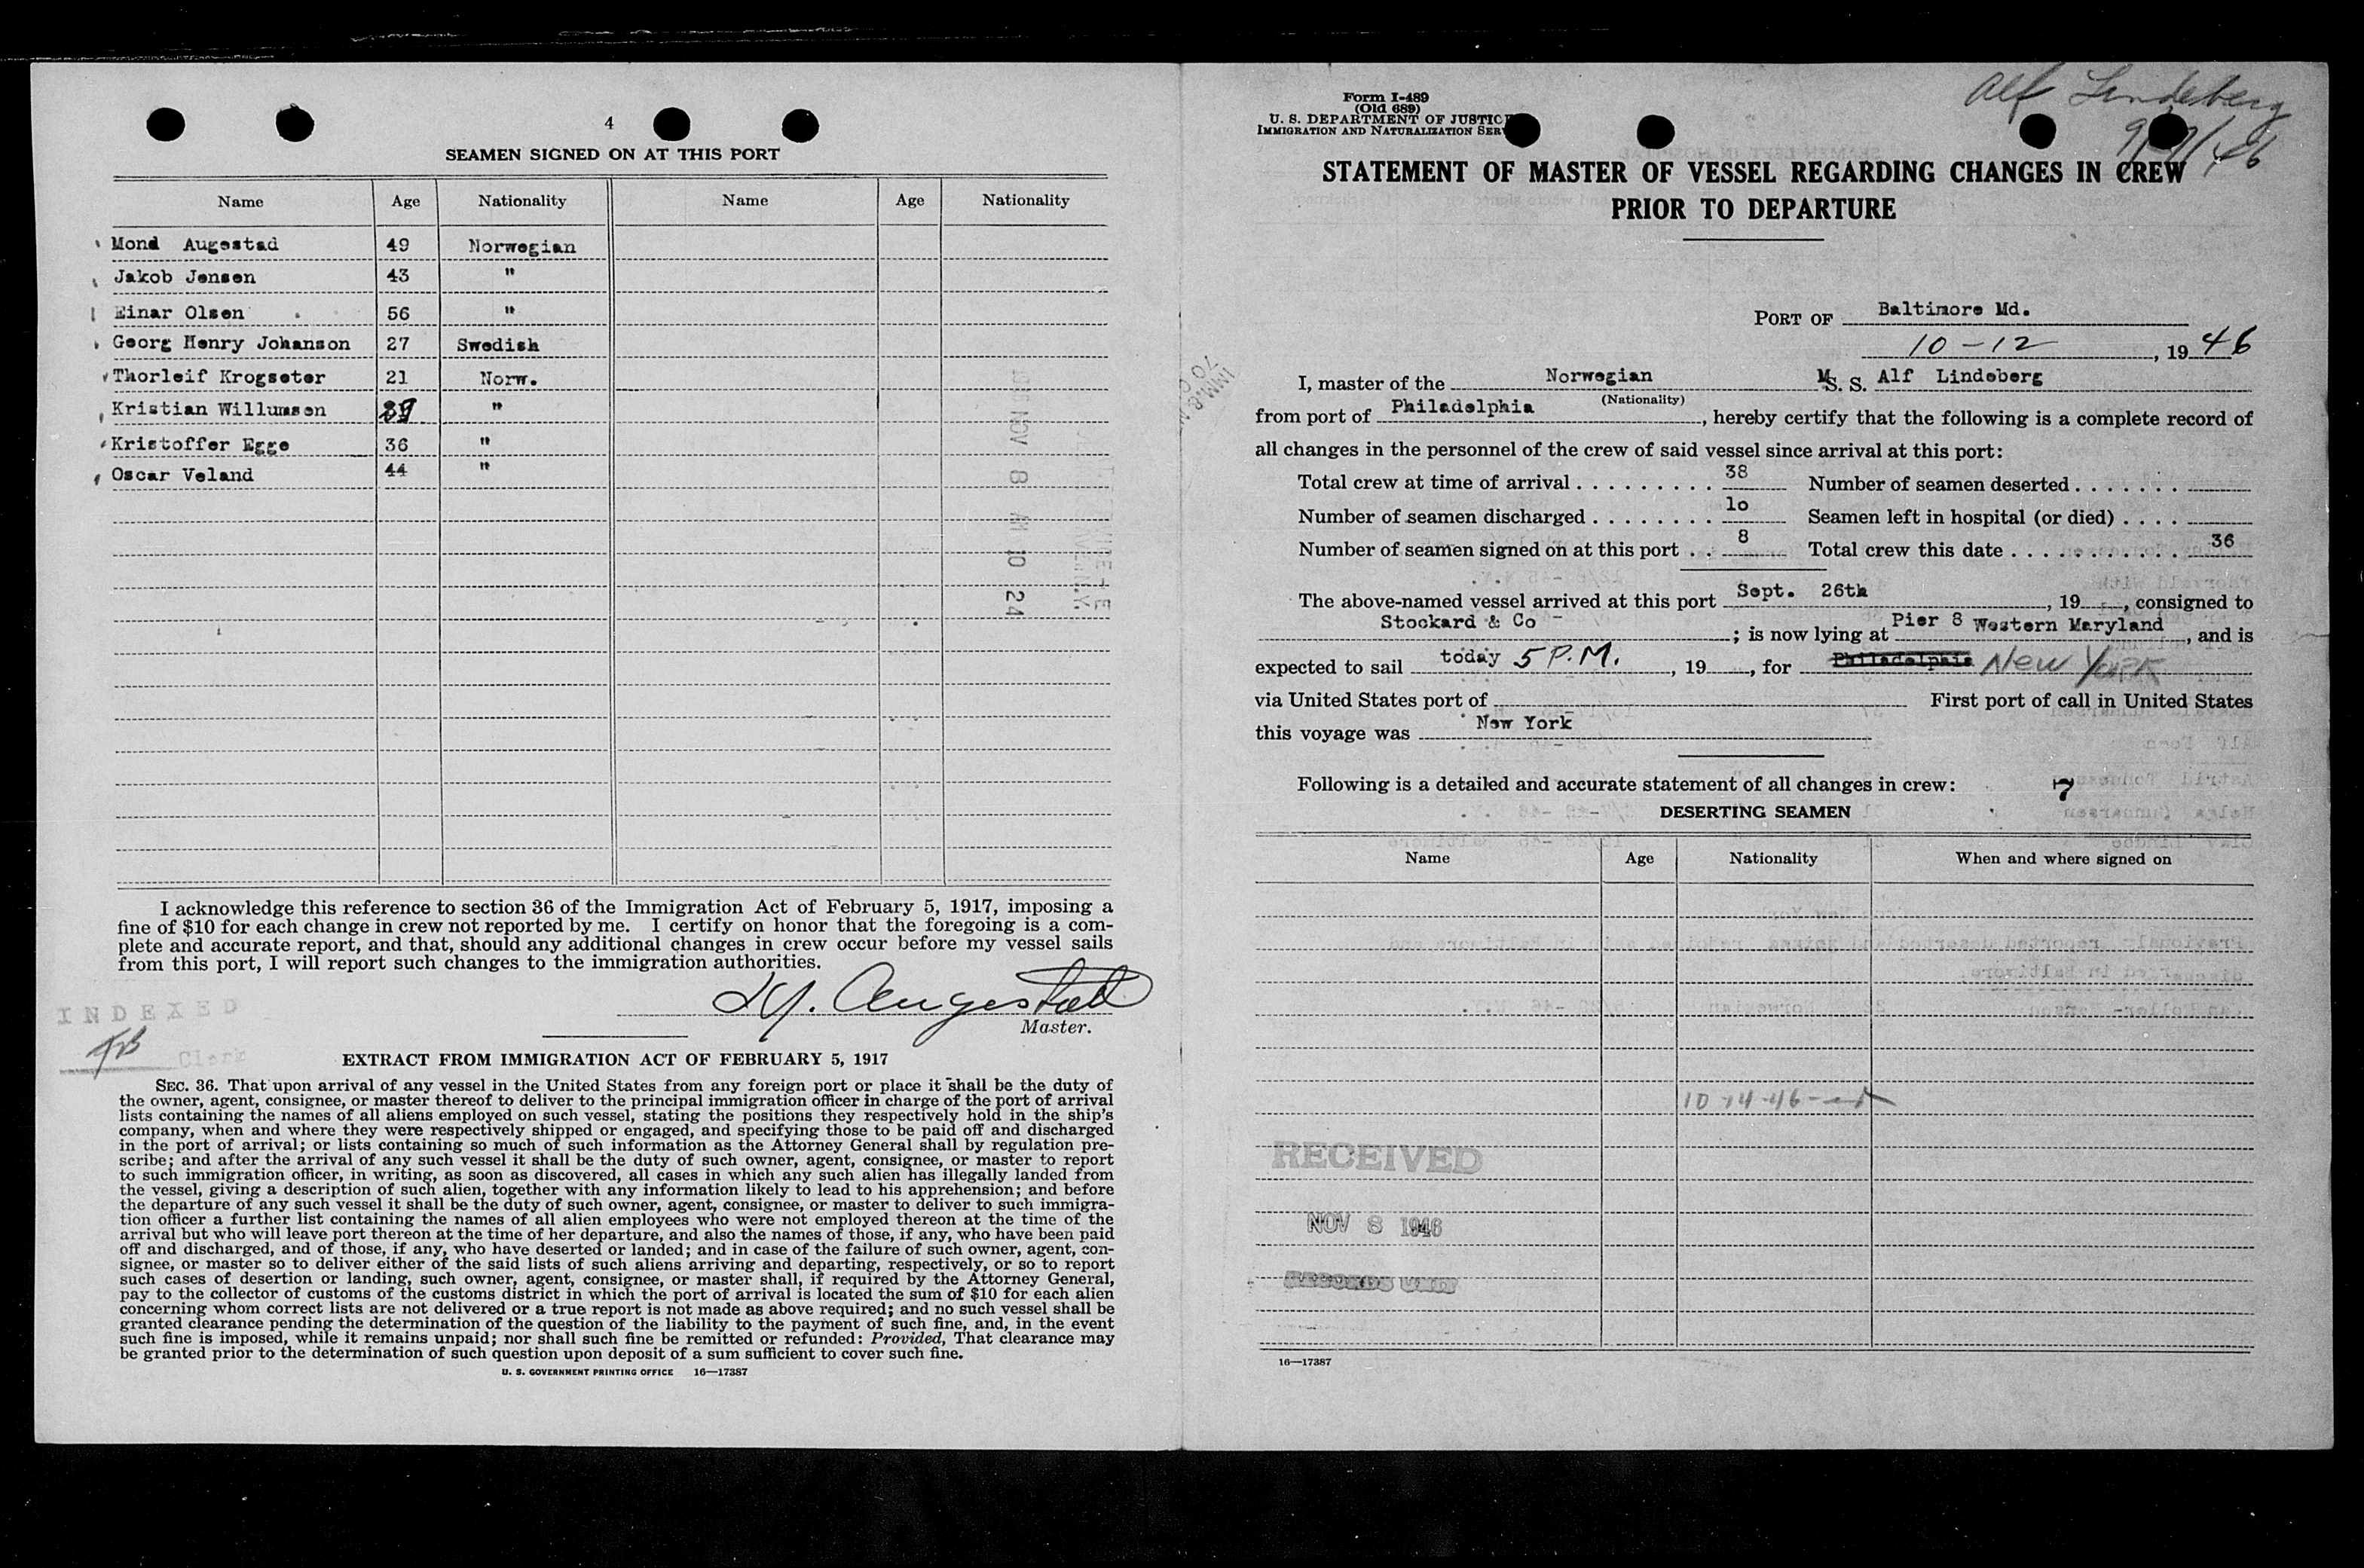 4
SEAMEN SIGNED ON AT THIS PORT
Name Age Nationality Name Age Nationality
Mond Augestad 49 Norwegian
Jakob Jensen 43 "
Einar Olsen 56 "
Georg Henry Johanson 27 Swedish
Thorleif Krogseter 21 Norw.
Kristian Willumsen "
Kristoffer Egge 36 "
Oscar Veland 44 "
NOV 8 AM 10 24
I acknowledge this reference to section 36 of the Immigration Act of February 5, 1917, imposing a
fine of $10 for each change in crew not reported by me. I certify on honor that the foregoing is a com-
plete and accurate report, and that, should any additional changes in crew occur before my vessel sails
from this port, I will report such changes to the immigration authorities.
INDEXED
Augestad
Master.
Clerk
EXTRACT FROM IMMIGRATION ACT OF FEBRUARY 5, 1917
SEC. 36. That upon arrival of any vessel in the United States from any foreign port or place it shall be the duty of
the owner, agent, consignee, or master thereof to deliver to the principal immigration officer in charge of the port of arrival
lists containing the names of all aliens employed on such vessel, stating the positions they respectively hold in the ship's
company, when and where they were respectively shipped or engaged, and specifying those to be paid off and discharged
in the port of arrival; or lists containing so much of such information as the Attorney General shall by regulation pre-
scribe; and after the arrival of any such vessel it shall be the duty of such owner, agent, consignee, or master to report
to such immigration officer, in writing, as soon as discovered, all cases in which any such alien has illegally landed from
the vessel, giving a description of such alien, together with any information likely to lead to his apprehension; and before
the departure of any such vessel it shall be the duty of such owner, agent, consignee, or master to deliver to such immigra-
tion officer a further list containing the names of all alien employees who were not employed thereon at the time of the
arrival but who will leave port thereon at the time of her departure, and also the names of those, if any, who have been paid
off and discharged, and of those, if any, who have deserted or landed; and in case of the failure of such owner, agent, con-
signee, or master so to deliver either of the said lists of such aliens arriving and departing, respectively, or so to report
such cases of desertion or landing, such owner, agent, consignee, or master shall, if required by the Attorney General,
pay to the collector of customs of the customs district in which the port of arrival is located the sum of $10 for each alien
concerning whom correct lists are not delivered or a true report is not made as above required; and no such vessel shall be
granted clearance pending the determination of the question of the liability to the payment of such fine, and, in the event
such fine is imposed, while it remains unpaid; nor shall such fine be remitted or refunded: Provided, That clearance may
be granted prior to the determination of such question upon deposit of a sum sufficient to cover such fine.
U. S. GOVERNMENT PRINTING OFFICE 16—17387
Alf Lindeberg
Form I-489
(Old 689)
U. S. DEPARTMENT OF JUSTICE
IMMIGRATION AND NATURALIZATION SERV
STATEMENT OF MASTER OF VESSEL REGARDING CHANGES IN CREW
PRIOR TO DEPARTURE
PORT OF Baltimore Md.
10-12, 1946
I, master of the Norwegian M S. S. Alf Lindeberg
(Nationality)
from port of Philadelphia, hereby certify that the following is a complete record of
all changes in the personnel of the crew of said vessel since arrival at this port:
Total crew at time of arrival . . . . . . . . . 38 Number of seamen deserted . . . . . . .
Number of seamen discharged . . . . . . . . 1o Seamen left in hospital (or died) . . . .
Number of seamen signed on at this port . . 8 Total crew this date . . . . . . . . . . . 36
The above-named vessel arrived at this port Sept. 26th, 19, consigned to
Stockard & Co; is now lying at Pier 8 Western Maryland, and is
expected to sail today 5 P.M., 19, for Philadelphia New York
via United States port of First port of call in United States
this voyage was New York
Following is a detailed and accurate statement of all changes in crew: 7
DESERTING SEAMEN
Name Age Nationality When and where signed on
10-14-46
RECEIVED
NOV 8 1946
RECORDS UNIT
16—17387